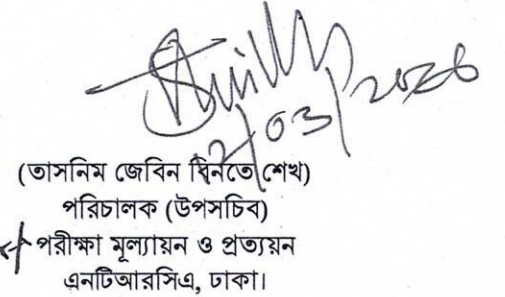 2/03/2026
(তাসনিম জেবিন বিনতে শেখ)
পরিচালক (উপসচিব)
পরীক্ষা মূল্যায়ন ও প্রত্যয়ন
এনটিআরসিএ, ঢাকা।